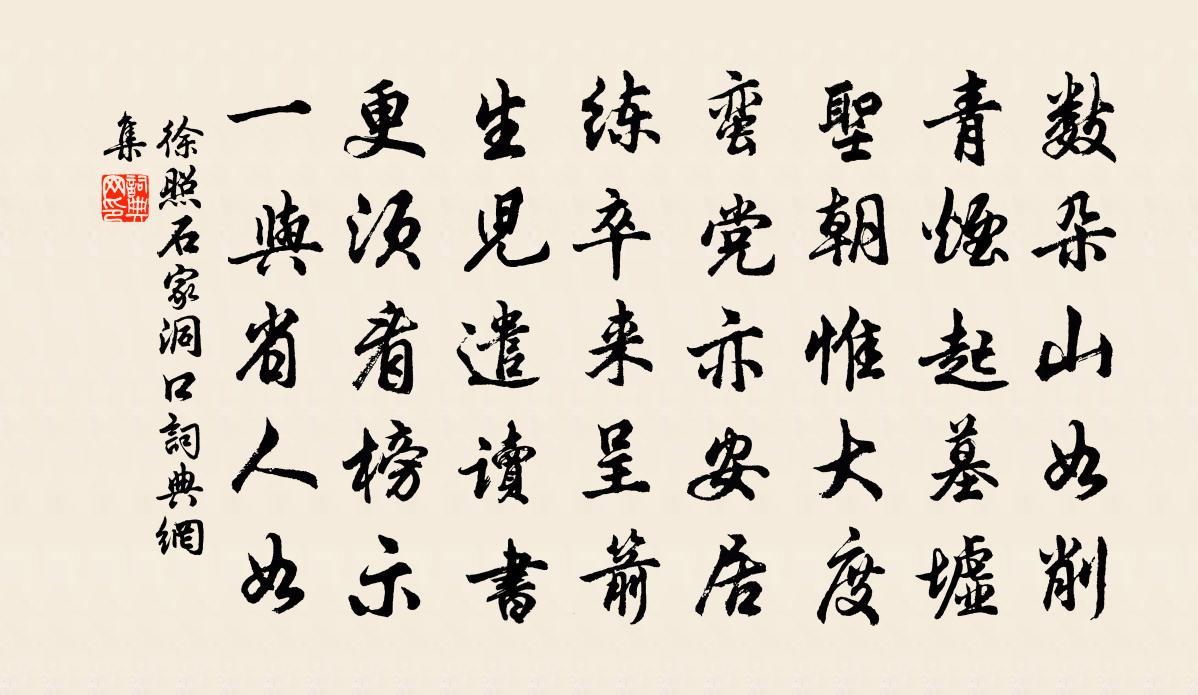 数朵山如削
青烟起墓墟
聖朝惟大度
蛮党亦安居
练卒来呈箭
生児遣讀書
更须看榜示
一與省人如
徐照石家洞口詞典網
集
詞典網印